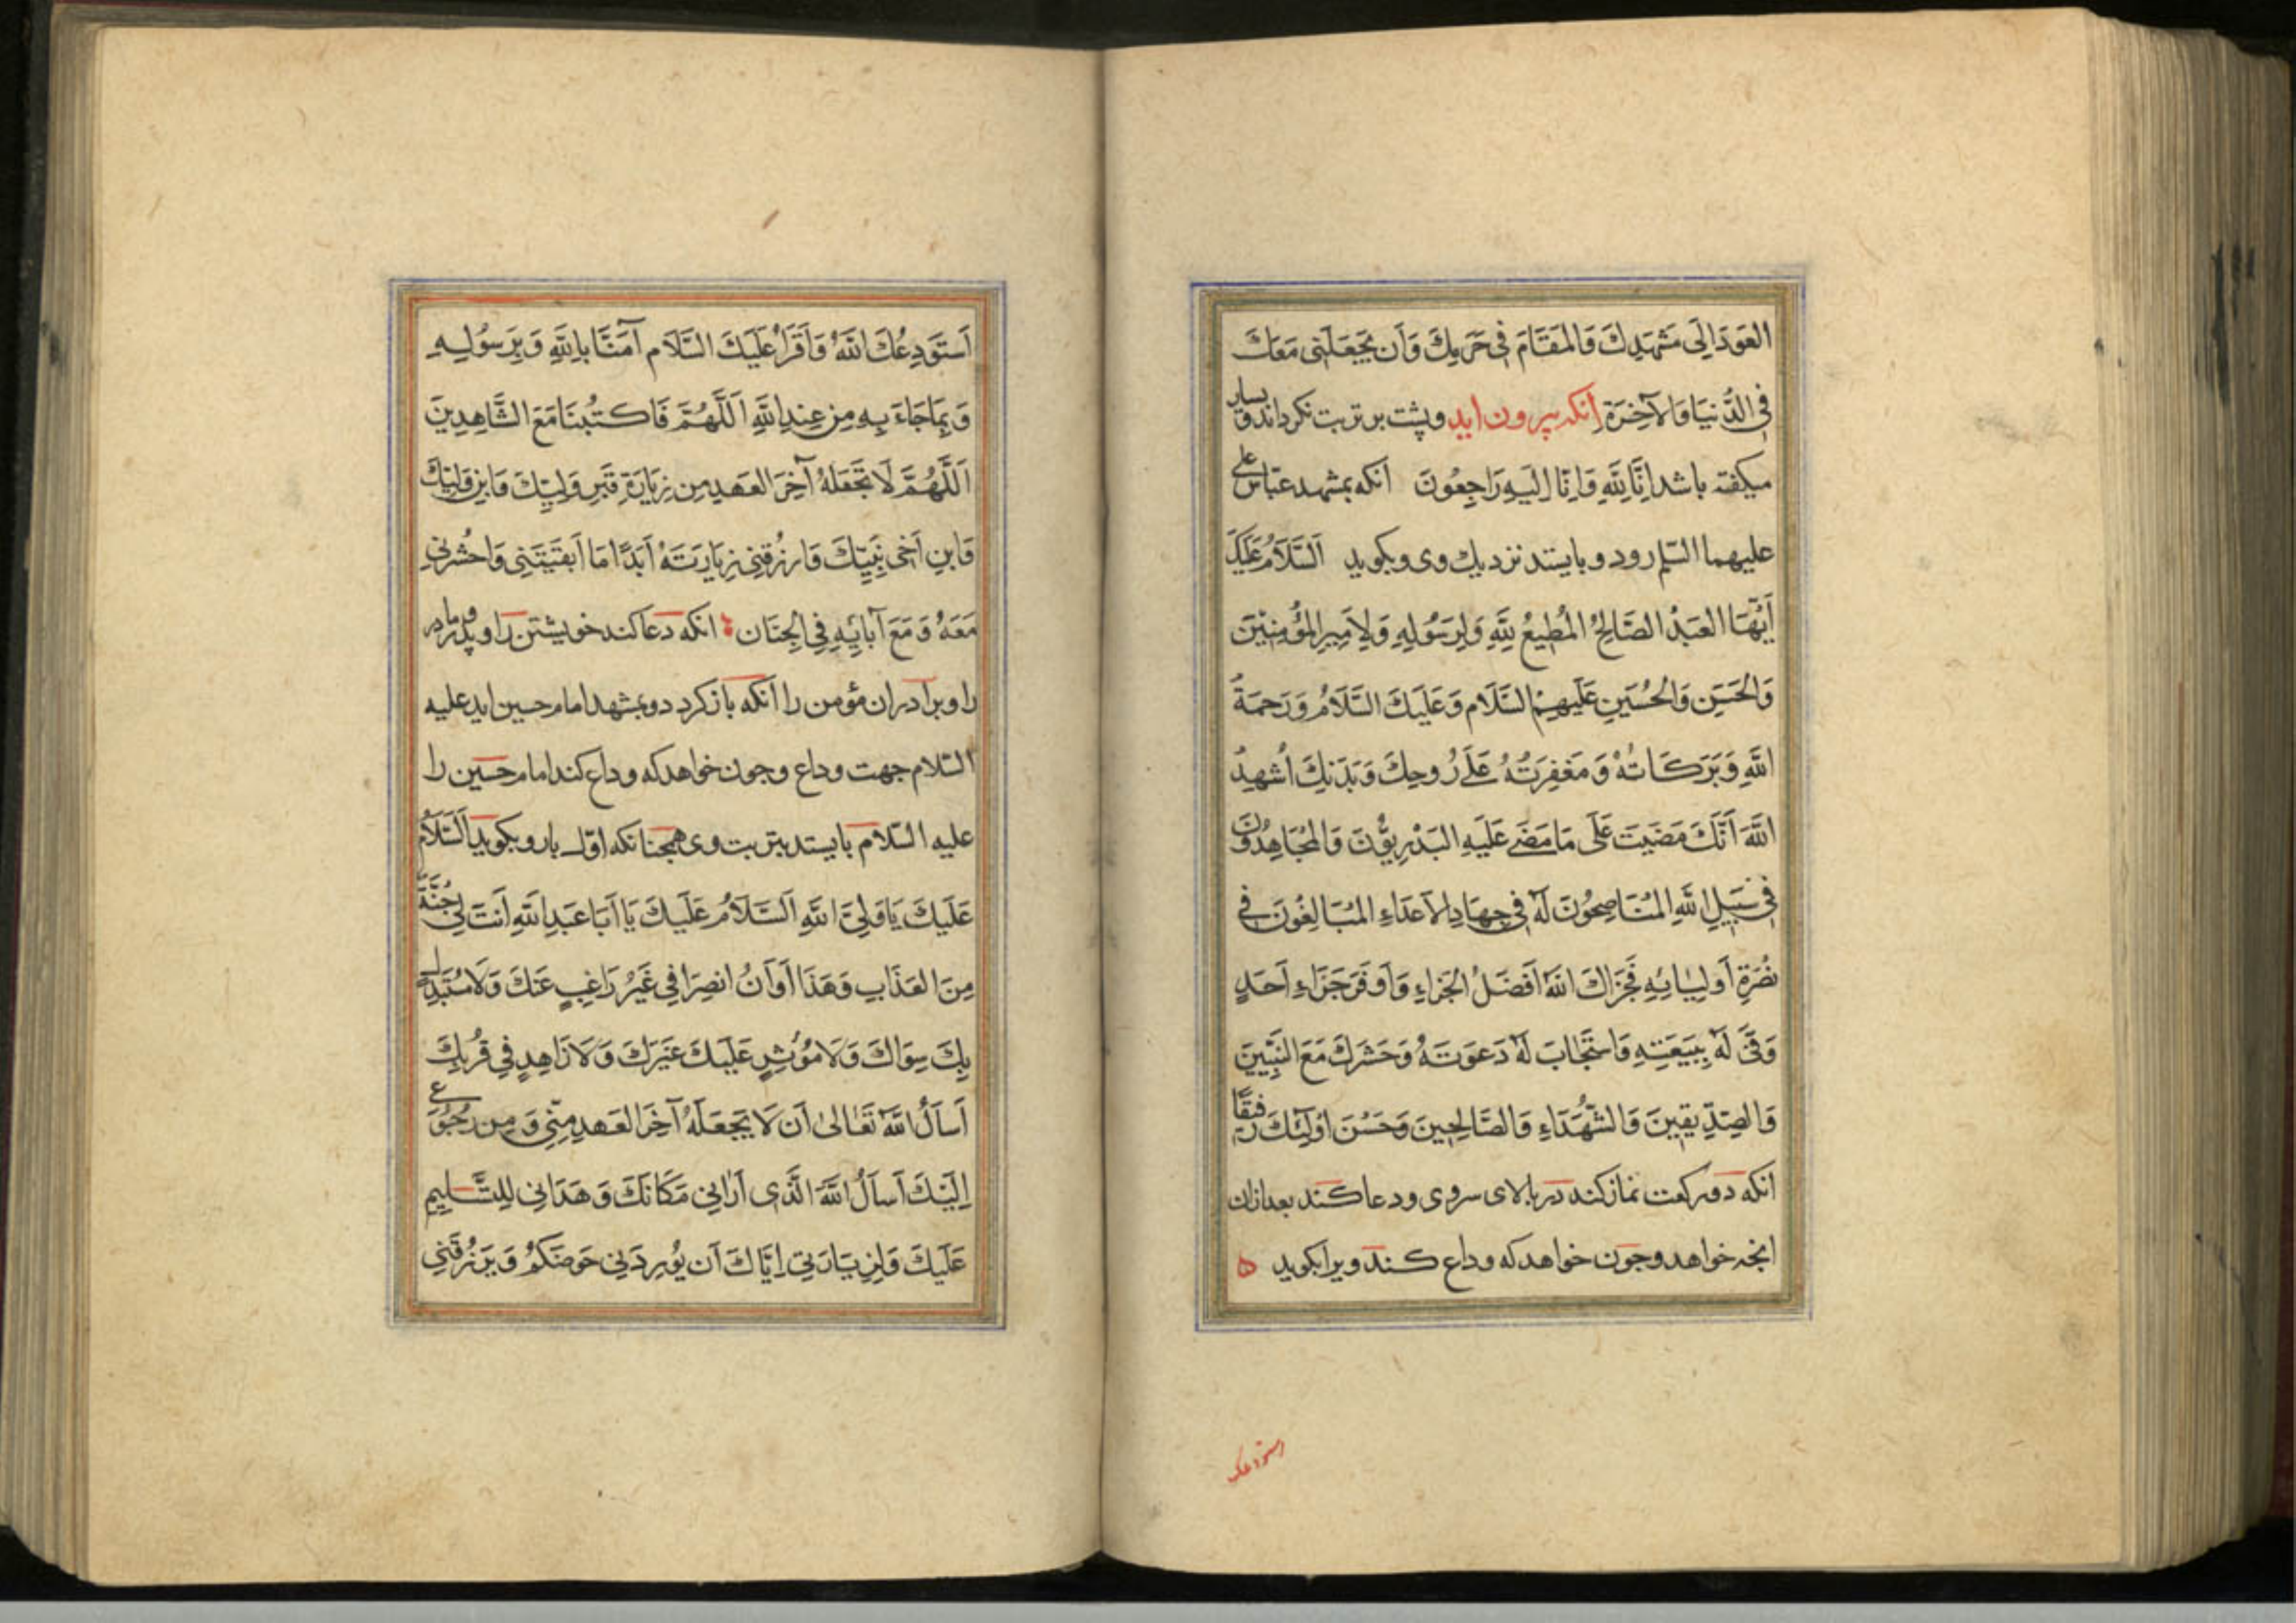 العَودَ اِلَى مَشْهَدِكَ وَالمَقَامَ فِى حَرَمِكَ وَاَن يَجْعَلَنِى مَعَكَ
فِى الدُّنيَا وَالآخِرَةِ انکه بیرون اید وپشت بر تربت نکرداند وبسیار
میکفته باشد اِنَّا لِلّٰهِ وَاِنَّا اِلَيهِ رَاجِعُونَ انکه بمشهد عباس علی
علیهما السّلم رود و بایستد نزدیك وی وبکوید اَلسَّلَامُ عَلَيكَ
اَيُّهَا العَبدُ الصَّالِحُ المُطِيعُ لِلّٰهِ وَلِرَسُولِهِ وَلِاَمِيرِ المُؤمِنِينَ
وَالحَسَنِ وَالحُسَينِ عَلَيهِمُ السَّلَام وَعَلَيكَ السَّلَامُ وَرَحمَةُ
اللّٰهِ وَبَرَكَاتُهُ وَمَغفِرَتُهُ عَلَى رُوحِكَ وَبَدَنِكَ اُشهِدُ
اللّٰهَ اَنَّكَ مَضَيتَ عَلَى مَا مَضَى عَلَيهِ البَدرِيُّونَ وَالمُجَاهِدُونَ
فِى سَبِيلِ اللّٰهِ المُنَاصِحُونَ لَهُ فِى جِهَادِ الاَعدَاءِ المُبَالِغُونَ فِى
نُصرَةِ اَولِيَائِهِ فَجَزَاكَ اللّٰهُ اَفضَلَ الجَزَاءِ وَاَوفَرَ جَزَاءِ اَحَدٍ
وَفَى لَهُ بِبَيعَتِهِ وَاستَجَابَ لَهُ دَعوَتَهُ وَحَشَرَكَ مَعَ النَّبِيِّينَ
وَالصِّدِّيقِينَ وَالشُّهَدَاءِ وَالصَّالِحِينَ وَحَسُنَ اُولٰئِكَ رَفِيقًا
انکه دو رکعت نماز کند در بالای سر وی ودعا کند بعد ازان
انچه خواهد وچون خواهد که وداع کند ویرا بکوید ه
استودعك
اَستَودِعُكَ اللّٰهَ وَاَقرَأُ عَلَيكَ السَّلَام آمَنَّا بِاللّٰهِ وَبِرَسُولِهِ
وَبِمَا جَاءَ بِهِ مِن عِندِ اللّٰهِ اَللّٰهُمَّ فَاكتُبنَا مَعَ الشَّاهِدِينَ
اَللّٰهُمَّ لَا تَجعَلهُ آخِرَ العَهدِ مِن زِيَارَةِ قَبرِ وَلِيِّكَ وَابنِ وَلِيِّكَ
وَابنِ اَخِى نَبِيِّكَ وَارزُقنِى زِيَارَتَهُ اَبَدًا مَا اَبقَيتَنِى وَاحشُرنِى
مَعَهُ وَمَعَ آبَائِهِ فِى الجِنَان انکه دعا کند خویشتن را وپدر ومادر
را وبرادران مؤمن را انکه بازکردد وبمشهد امام حسین اید علیه
السّلام جهت وداع وچون خواهد که وداع کند امام حسین را
علیه السّلام بایستد بتربت وی همچنانکه اوّل بار وبکوید اَلسَّلَامُ
عَلَيكَ يَا وَلِىَّ اللّٰهِ اَلسَّلَامُ عَلَيكَ يَا اَبَا عَبدِ اللّٰهِ اَنتَ لِى جُنَّةٌ
مِنَ العَذَابِ وَهَذَا اَوَانُ انصِرَافِى غَيرُ رَاغِبٍ عَنكَ وَلَا مُستَبدِلٍ
بِكَ سِوَاكَ وَلَا مُؤثِرٍ عَلَيكَ غَيرَكَ وَلَا زَاهِدٍ فِى قُربِكَ
اَسأَلُ اللّٰهَ تَعَالىٰ اَن لَا يَجعَلَهُ آخِرَ العَهدِ مِنِّى وَمِن رُجُوعِى
اِلَيكَ اَسأَلُ اللّٰهَ الَّذِى اَرَانِى مَكَانَكَ وَهَدَانِى لِلتَّسلِيمِ
عَلَيكَ وَلِزِيَارَتِى اِيَّاكَ اَن يُورِدَنِى حَوضَكُم وَيَرزُقَنِى